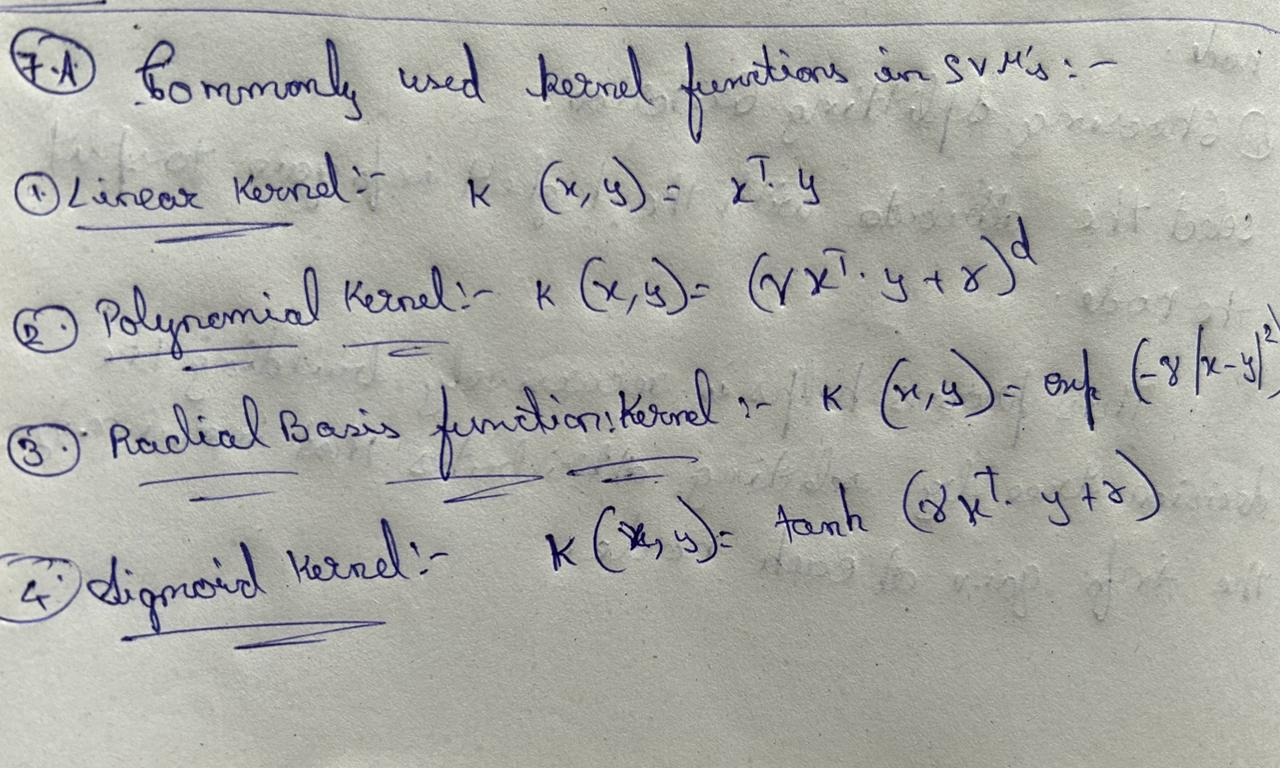 7.A Commonly used kernel functions in SVM's :-
① Linear Kernel :- K (x, y) = x^T. y
②. Polynomial Kernel :- K (x, y) = (γ x^T. y + r)^d
③. Radial Basis function: Kernel :- K (x, y) = exp (-γ |x-y|^2)
④. Sigmoid Kernel :- K (x, y) = tanh (γ x^T. y + r)